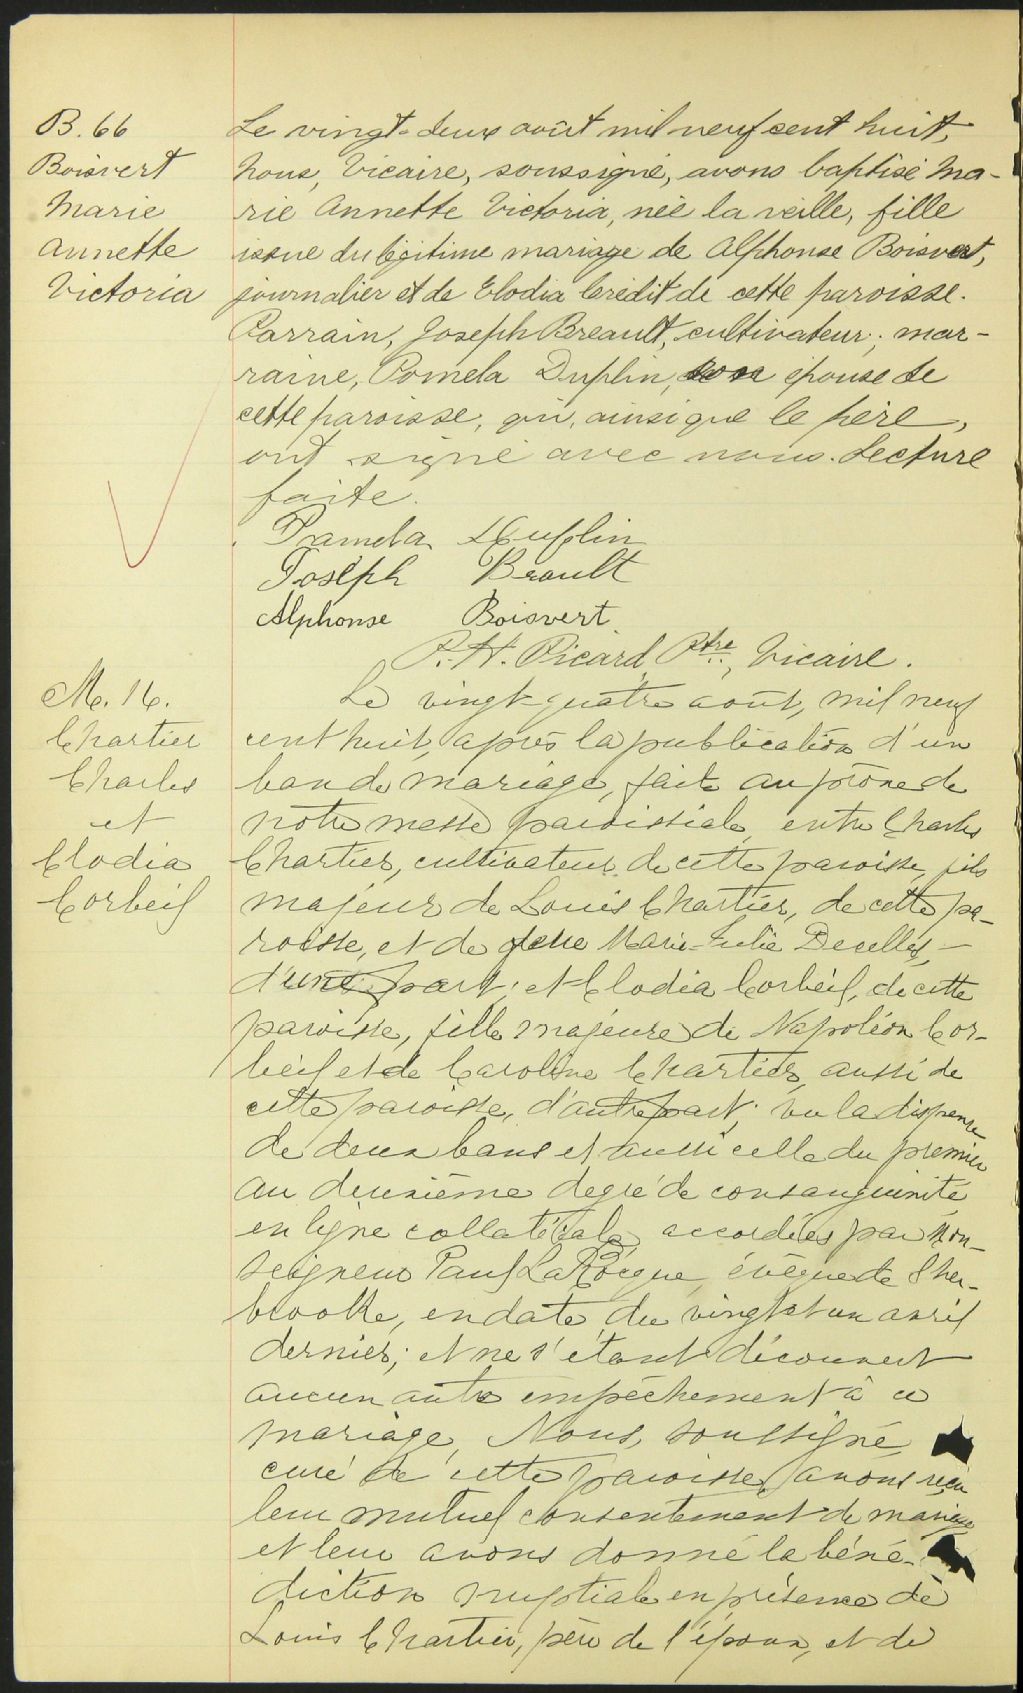 B. 66
Boisvert
Marie
Annette
Victoria
Le vingt-deux août mil neuf cent huit,
Nous, Vicaire, soussigné, avons baptisé Ma-
rie Annette Victoria, née la veille, fille
issue du légitime mariage de Alphonse Boisvert,
journalier et de Elodia Crédit de cette paroisse.
Parrain, Joseph Breault, cultivateur; mar-
raine, Pomela Duplin, son épouse de
cette paroisse, qui, ainsi que le père,
ont signé avec nous. Lecture
faite.
Pamela Duplin
Joseph Brault
Alphonse Boisvert
P. H. Picard Ptre, Vicaire.
M. 16.
Chartier
Charles
et
Clodia
Corbeil
Le vingt-quatre août, mil neuf
cent huit, après la publication d'un
ban de mariage, faite au prône de
notre messe paroissiale, entre Charles
Chartier, cultivateur de cette paroisse, fils
majeur de Louis Chartier, de cette pa-
roisse, et de feue Marie-Julie Decelles,
d'une part; et Clodia Corbeil, de cette
paroisse, fille majeure de Napoléon Cor-
beil et de Caroline Chartier, aussi de
cette paroisse, d'autre part; vu la dispense
de deux bans et aussi celle du premier
au deuxième degré de consanguinité
en ligne collatérale, accordées par Mon-
seigneur Paul LaRocque, évêque de Sher-
brooke, en date du vingt et un avril
dernier; et ne s'étant découvert
aucun autre empêchement à ce
mariage, Nous, soussigné,
curé de cette paroisse, avons reçu
leur mutuel consentement de mariage
et leur avons donné la béné-
diction nuptiale en présence de
Louis Chartier, père de l'époux, et de